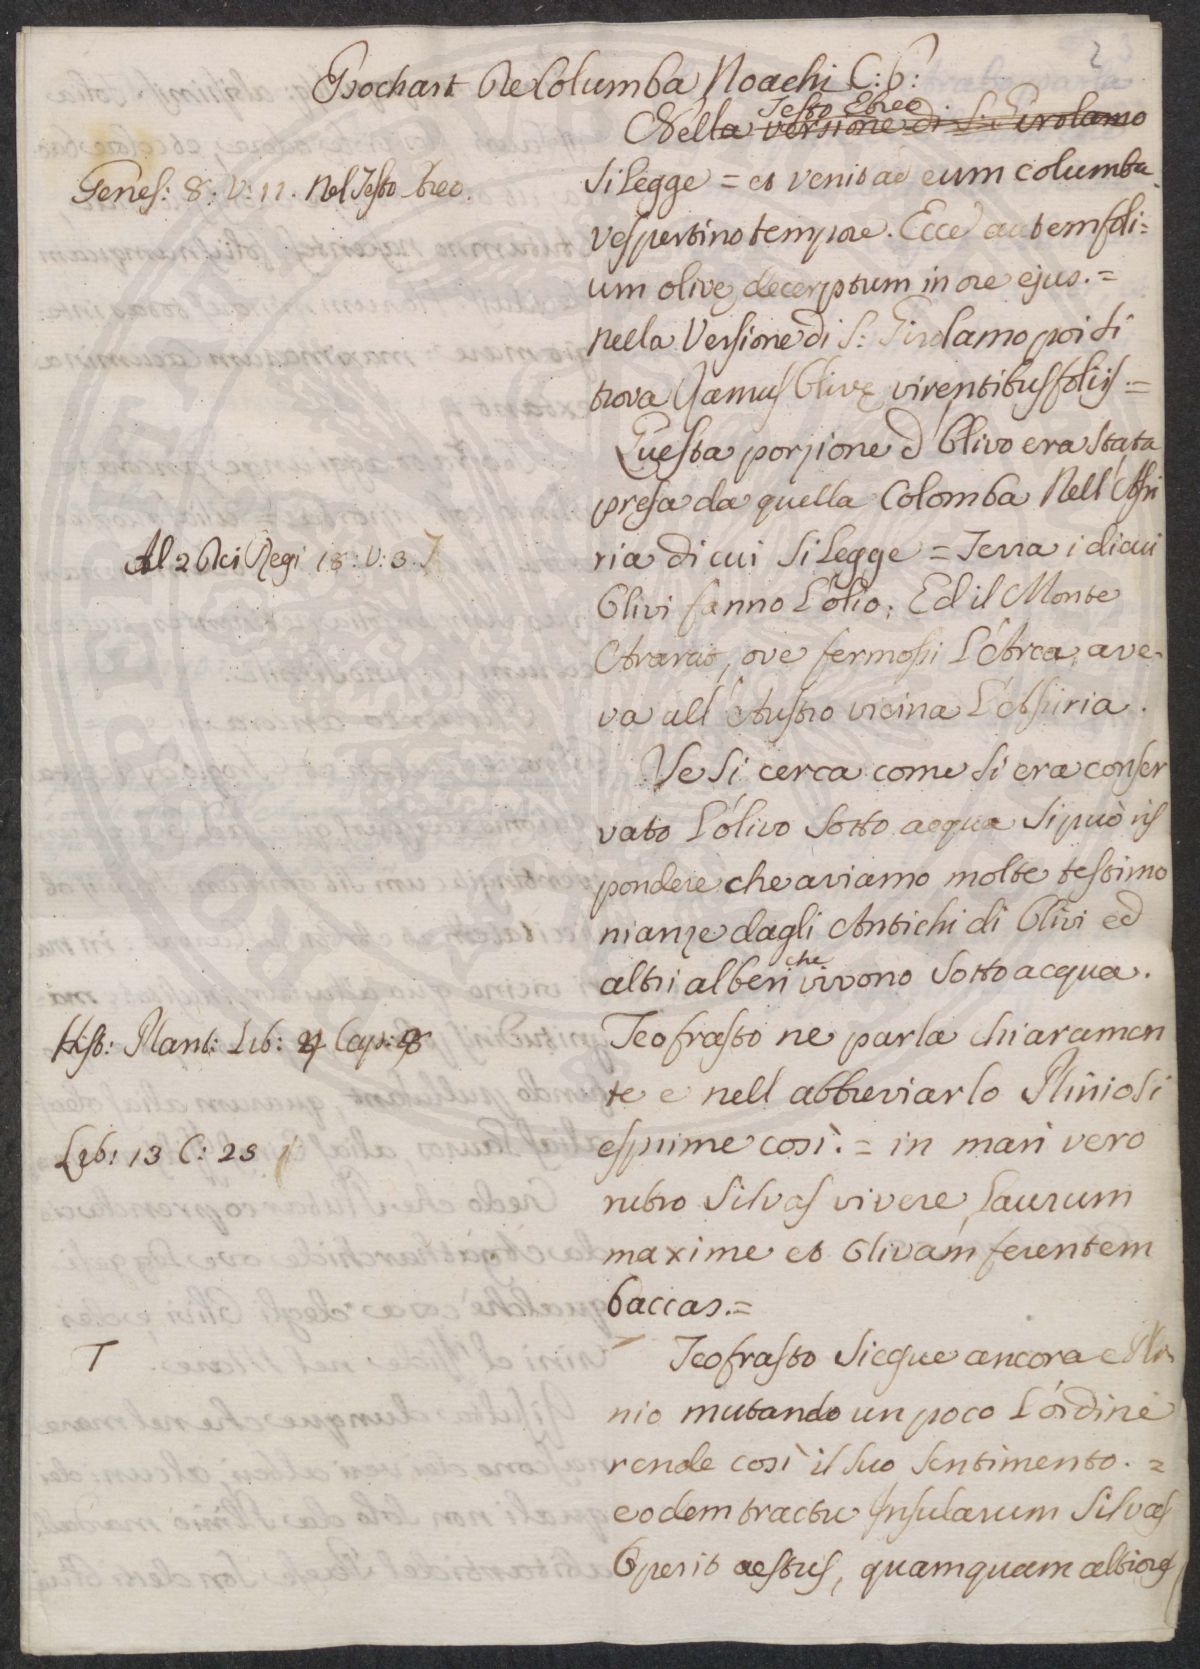 2
Bochart De Columba Noachi C: 6:
Testo Ebreo
Nella versione di S: Girolamo
Genes: 8: V: 11. Nel Testo breo.
si Legge = et venit ad eum columba
vespertino tempore. Ecce autem foli=
um olivę decerptum in ore ejus. =
nella Versione di S: Girolamo poi si
trova Ramus Olivę virentibus foliis. =
Questa porzione d Olivo era stata
presa da quella Colomba Nell Assi
Al 2 Dei Regi 18: V: 3
ria di cui si Legge = Terra i di cui
Olivi fanno L'olio; Ed il Monte
Ararat, ove fermossi L'Arca, ave-
va all'Austro vicina L'Assiria.
Se si cerca come si era conser
vato L'olivo sotto acqua si può ris
pondere che aviamo molte testimo
nianze dagli Antichi di Olivi ed
altri alberi che vivono sotto acqua.
Hist: Plant: Lib: 4 Cap: 8
Teofrasto ne parla chiaramen
te e nell abbreviarlo Plinio si
Lib: 13 C: 25
esprime così. = in mari vero
rubro silvas vivere, Laurum
maxime et Olivam ferentem
baccas. =
T
Teofrasto siegue ancora e Pli
nio mutando un poco L'ordine
rende così il suo sentimento. =
eodem tractu Insularum silvas
Operit aestus, quamquam altiores